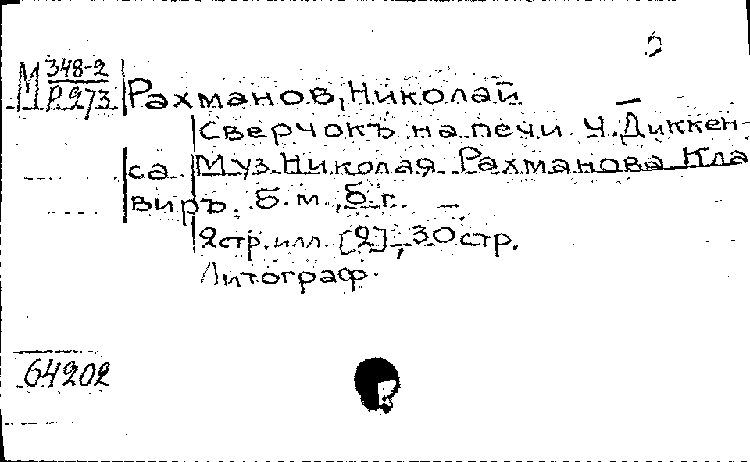 М 348-2
Р 273
Рахманов, Николай
Сверчокъ на печи Ч. Диккен-
са Муз. Николая Рахманова Кла
виръ. Б. м., б. г. —
2 стр. илл. [2], 30 стр.
Литограф.
64202